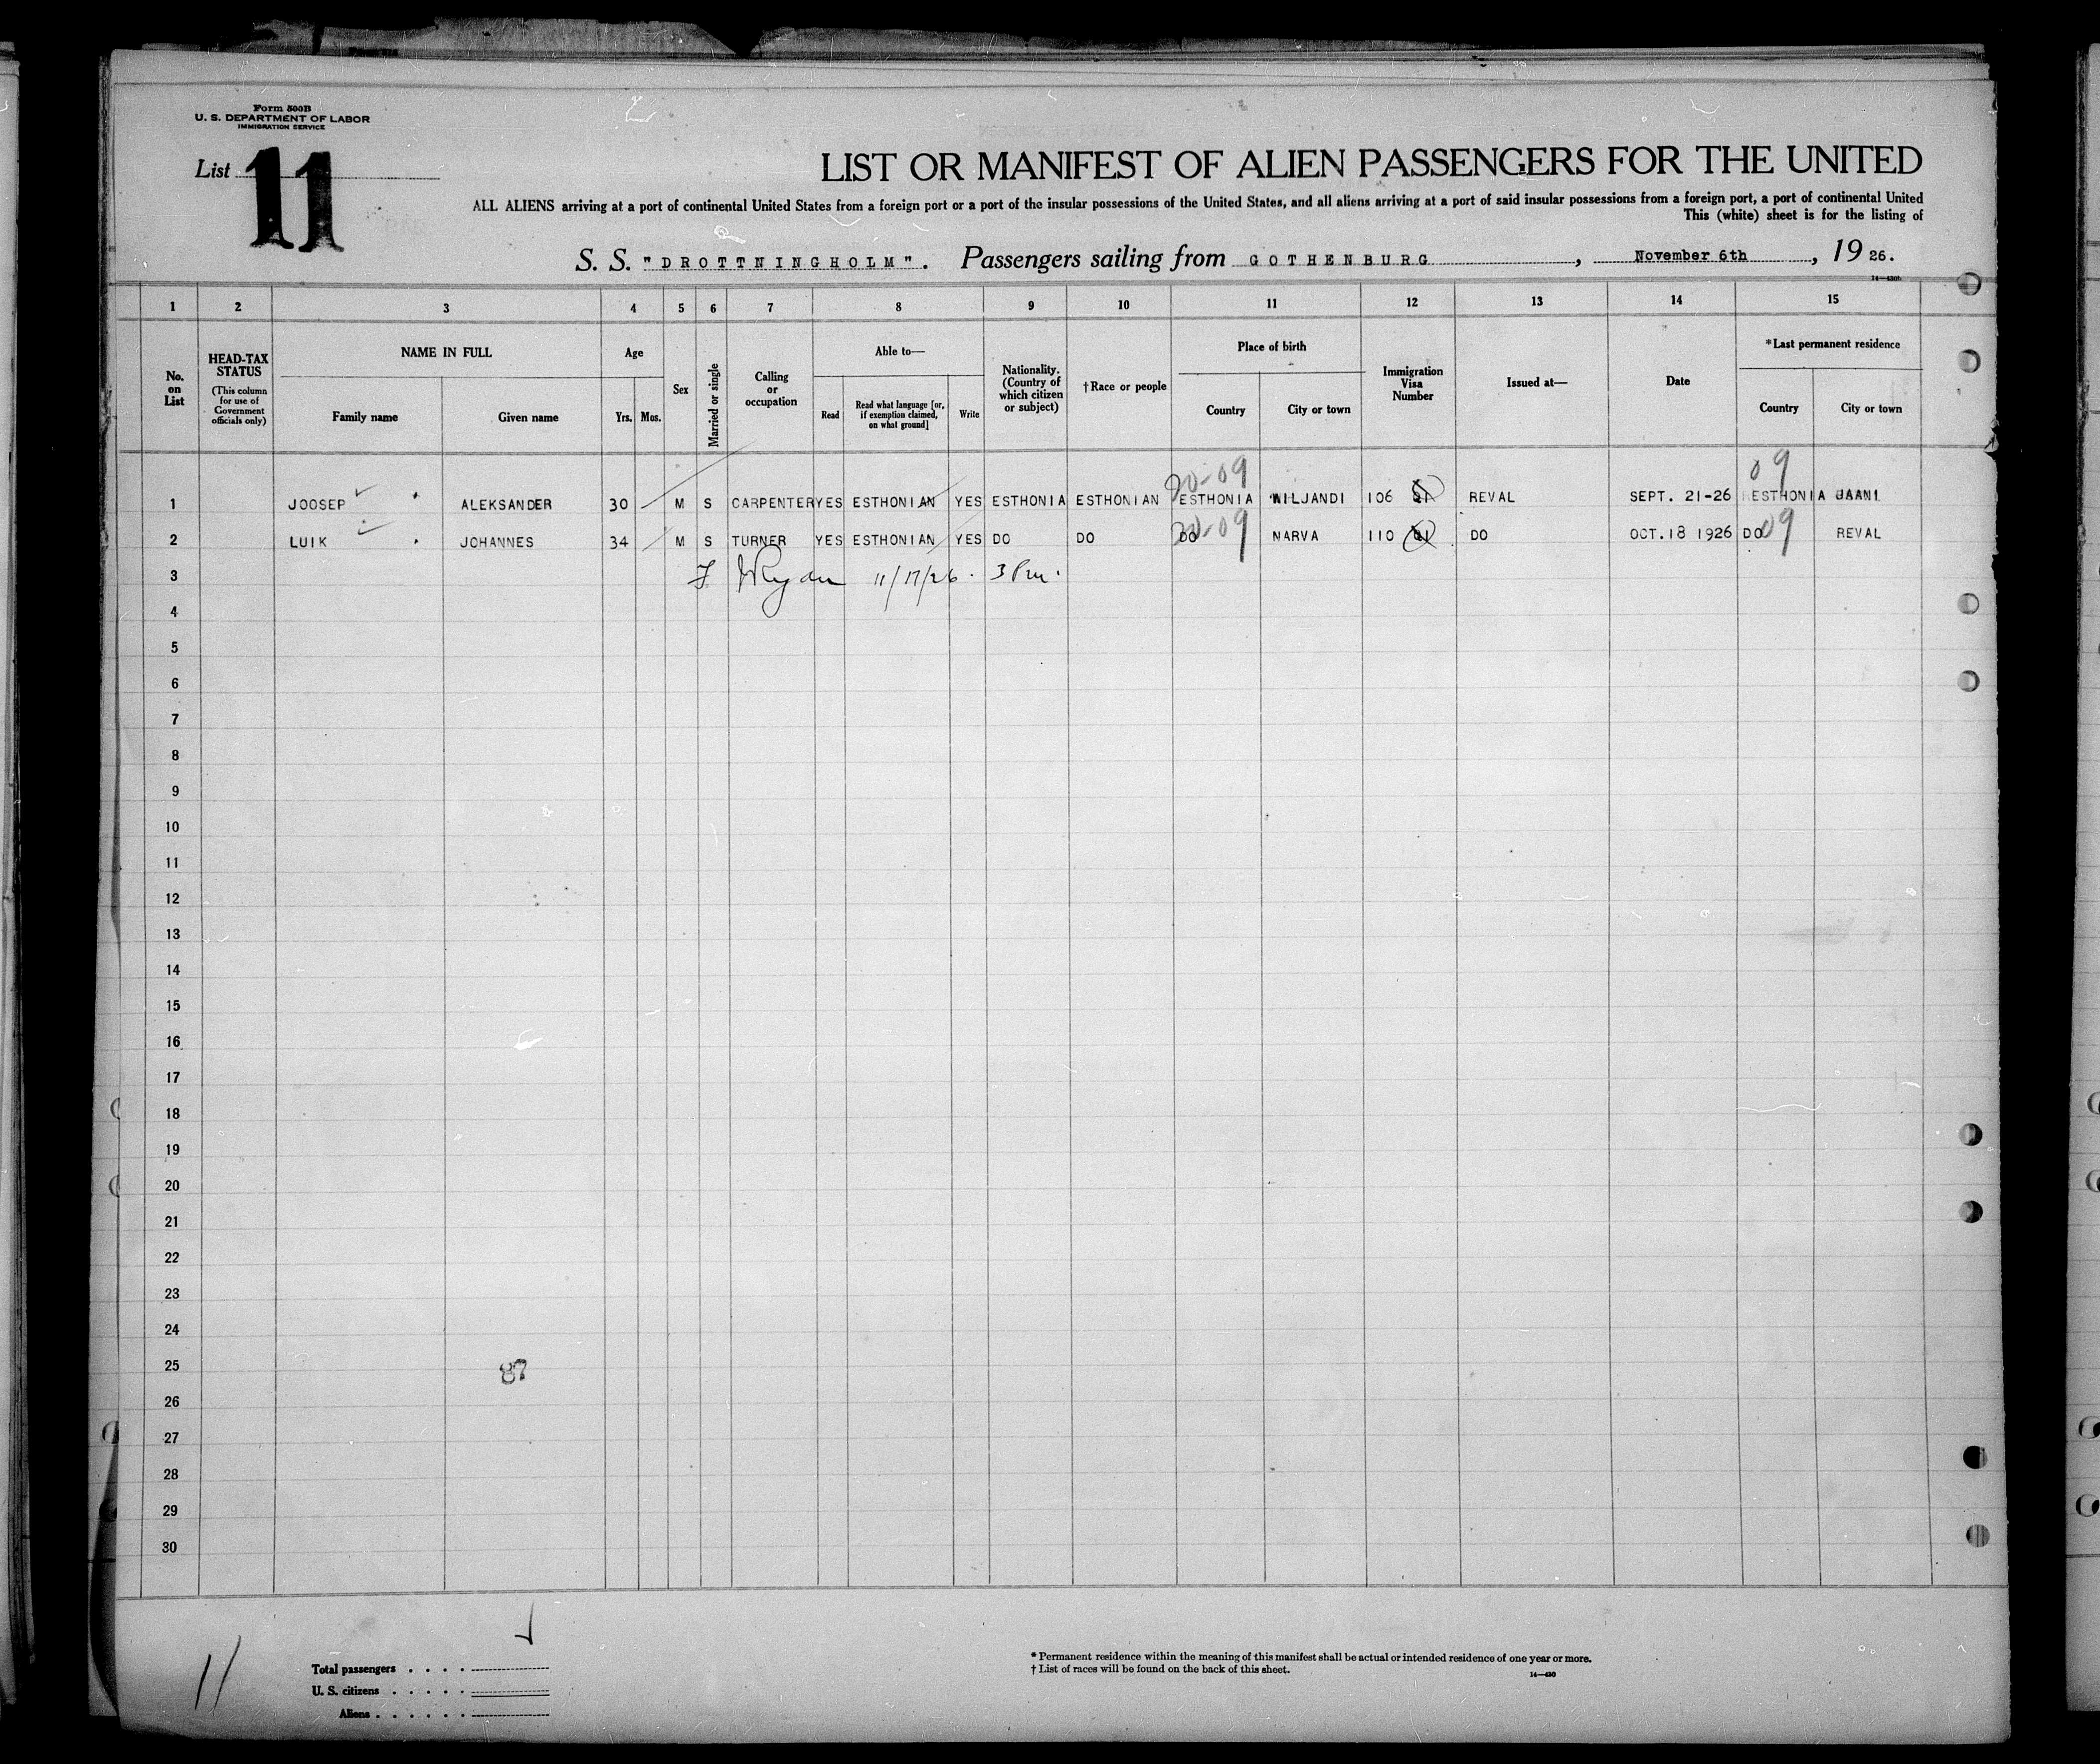 Form 500B
U. S. DEPARTMENT OF LABOR
IMMIGRATION SERVICE
List 11
LIST OR MANIFEST OF ALIEN PASSENGERS FOR THE UNITED
ALL ALIENS arriving at a port of continental United States from a foreign port or a port of the insular possessions of the United States, and all aliens arriving at a port of said insular possessions from a foreign port, a port of continental United
This (white) sheet is for the listing of
S. S. "DROTTNINGHOLM". Passengers sailing from GOTHENBURG, November 6th, 19 26.
1 2 3 4 5 6 7 8 9 10 11 12 13 14 15
No. on List
HEAD-TAX STATUS (This column for use of Government officials only)
NAME IN FULL Family name Given name
Age Yrs. Mos.
Sex
Married or single
Calling or occupation
Able to— Read Read what language [or, if exemption claimed, on what ground] Write
Nationality. (Country of which citizen or subject)
†Race or people
Place of birth Country City or town
Immigration Visa Number
Issued at—
Date
*Last permanent residence Country City or town
20-09 09
1 JOOSEP ALEKSANDER 30 M S CARPENTER YES ESTHONIAN YES ESTHONIA ESTHONIAN ESTHONIA WILJANDI 106 REVAL SEPT. 21-26 ESTHONIA JAANI
20-09 09
2 LUIK JOHANNES 34 M S TURNER YES ESTHONIAN YES DO DO DO NARVA 110 DO OCT.18 1926 DO REVAL
3 11/17/26. 3 Pm.
4
5
6
7
8
9
10
11
12
13
14
15
16
17
18
19
20
21
22
23
24
25 87
26
27
28
29
30
11
Total passengers . . . .
U. S. citizens . . . . .
Aliens . . . . . .
* Permanent residence within the meaning of this manifest shall be actual or intended residence of one year or more.
† List of races will be found on the back of this sheet.
14—430